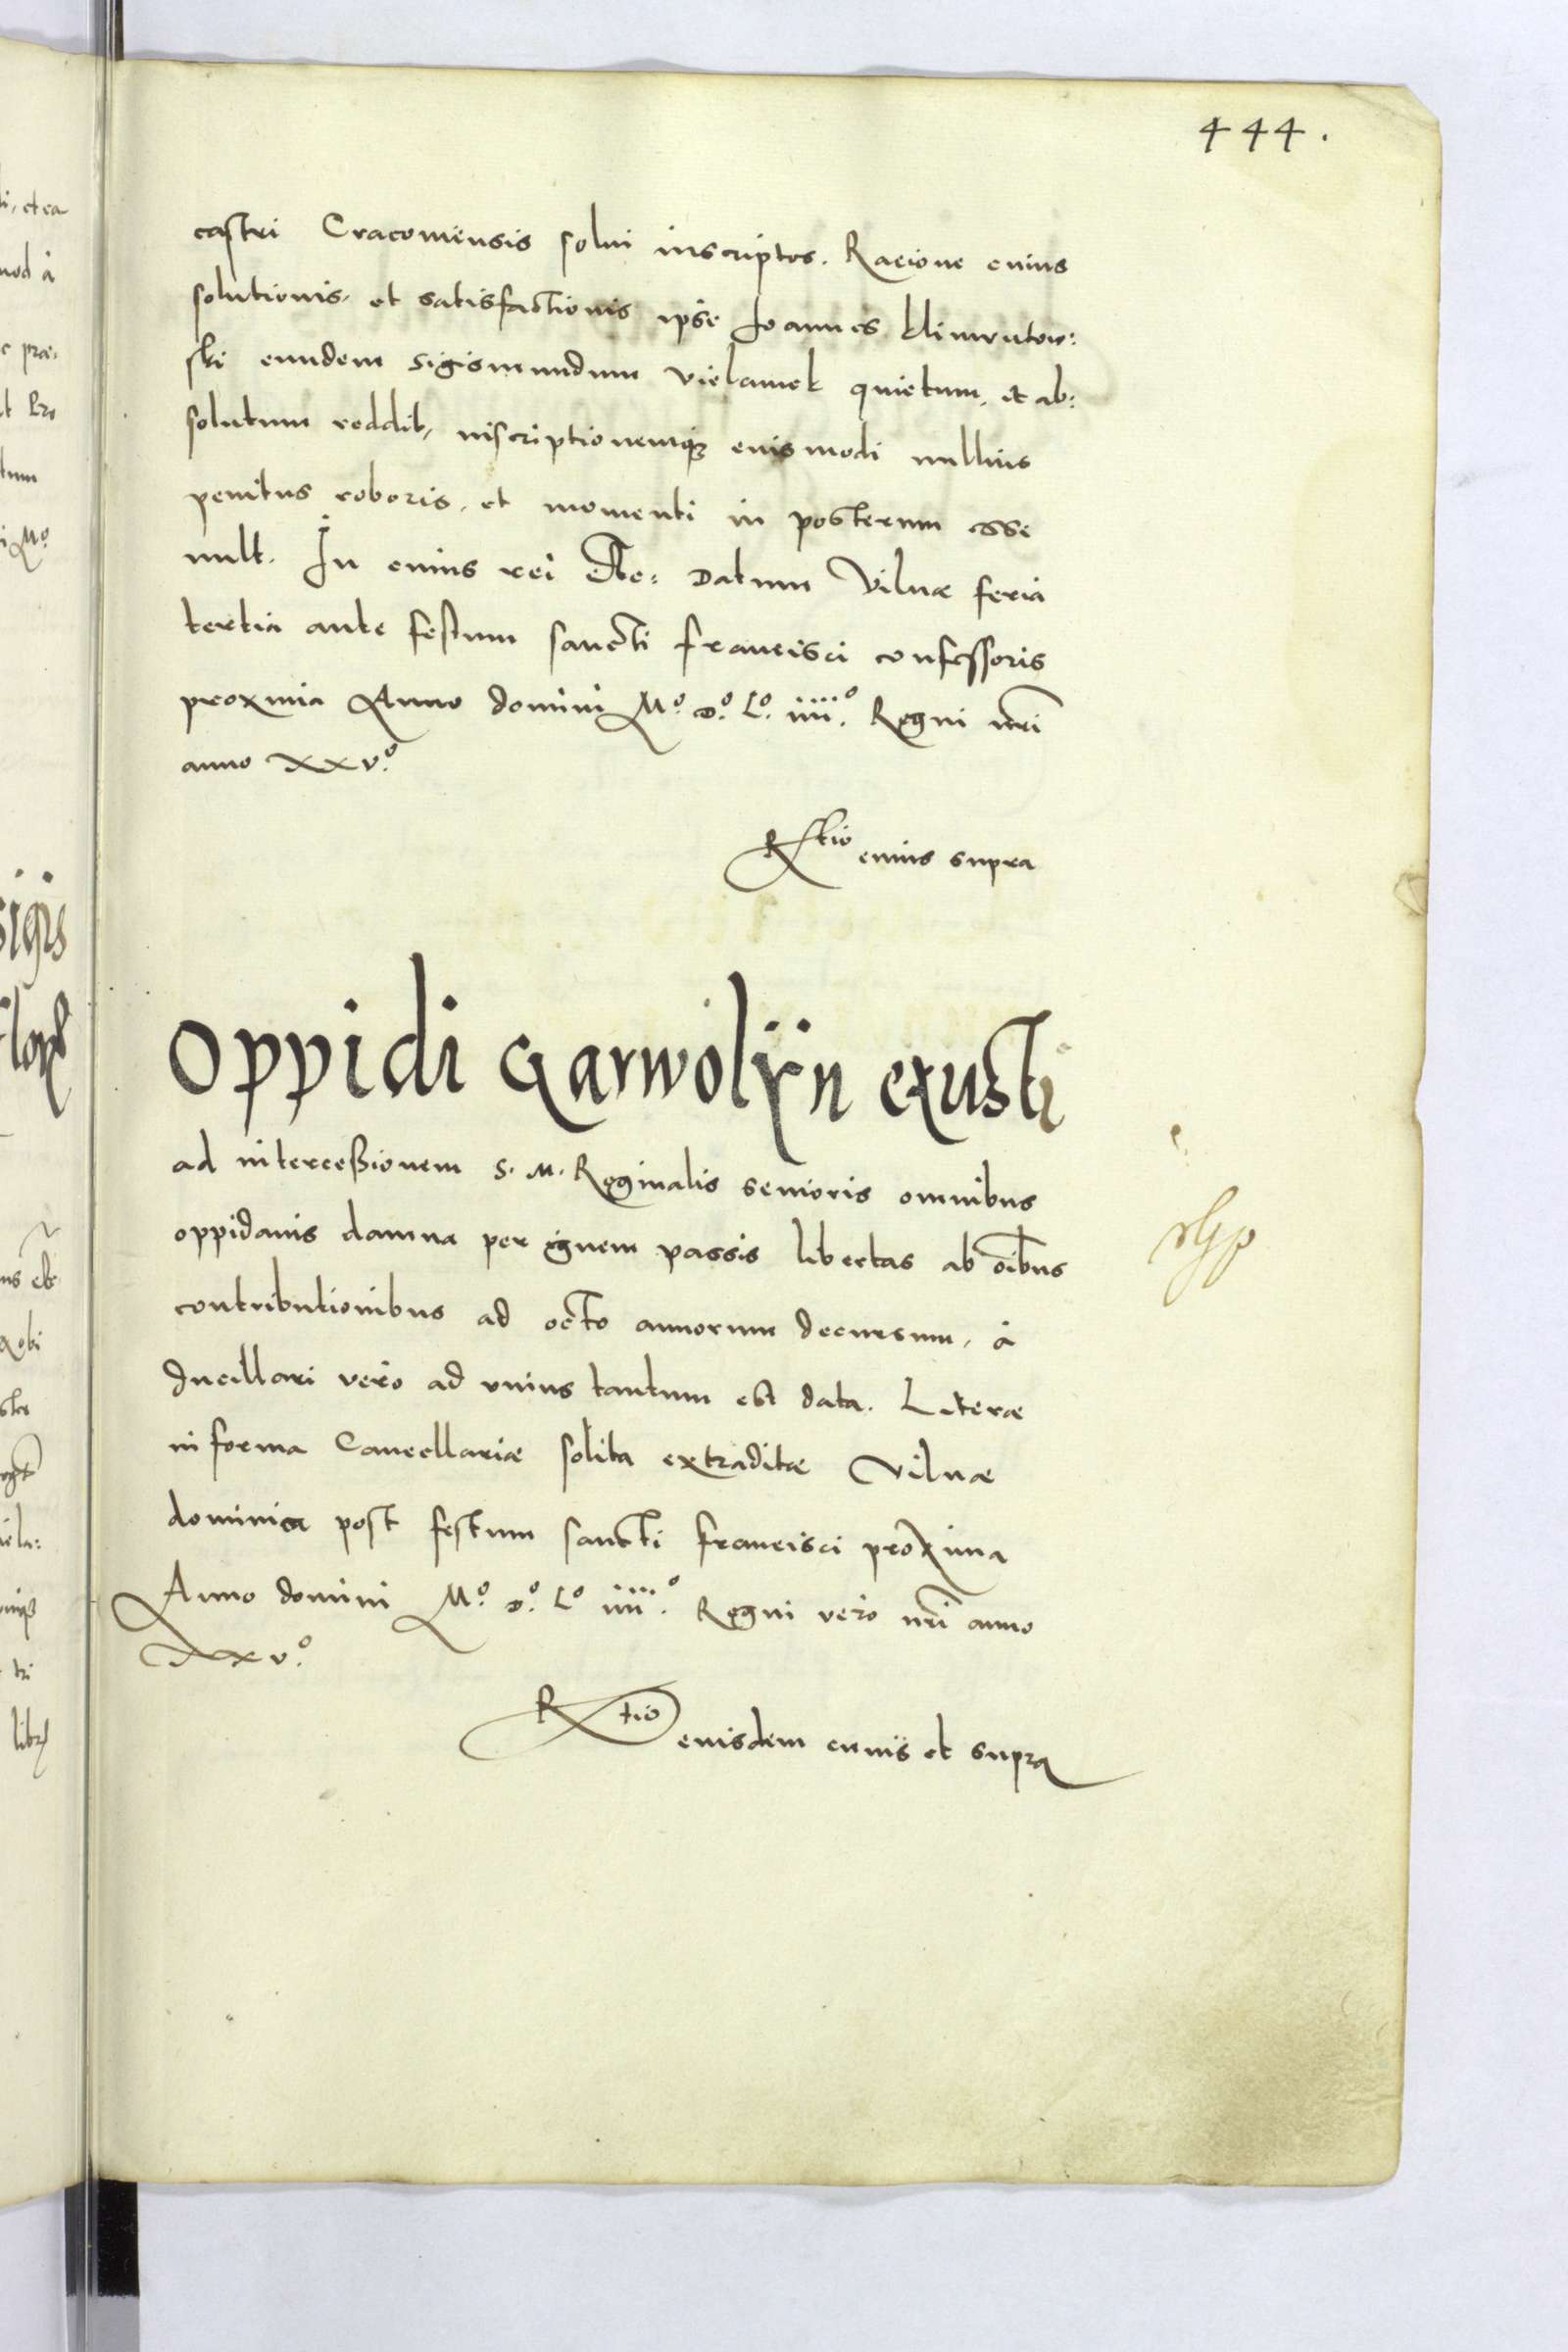 444.
castri Cracouiensis solui inscriptos. Racione cuius
solutionis, et satisfactionis ipse Joannes Klimuntow:
ski eundem Sigismundum Vielamek quietum, et ab:
solutum reddit, inscriptionemque eiusmodi nullius
penitus roboris, et momenti in posterum esse
uult. In cuius rei etc: Datum Vilnæ feria
tertia ante festum sancti Francisci confessoris
proxima Anno domini Mº. Dº. Lº. iiiiº. Regni nri
anno xxvº.
Rtio cuius supra
Oppidi Garwolÿn exusti
ad interceßionem S. M. Reginalis senioris omnibus
oppidanis damna per ignem passis libertas ab oibus
contributionibus ad octo annorum decursum, à
Ducillari vero ad vnius tantum est data. Literæ
in forma Cancellariæ solita extraditæ Vilnæ
dominica post festum sancti Francisci proxima
Anno domini Mº. Dº. Lº iiiiº. Regni vero nri anno
xxvº.
Rtio eiusdem cuius et supra